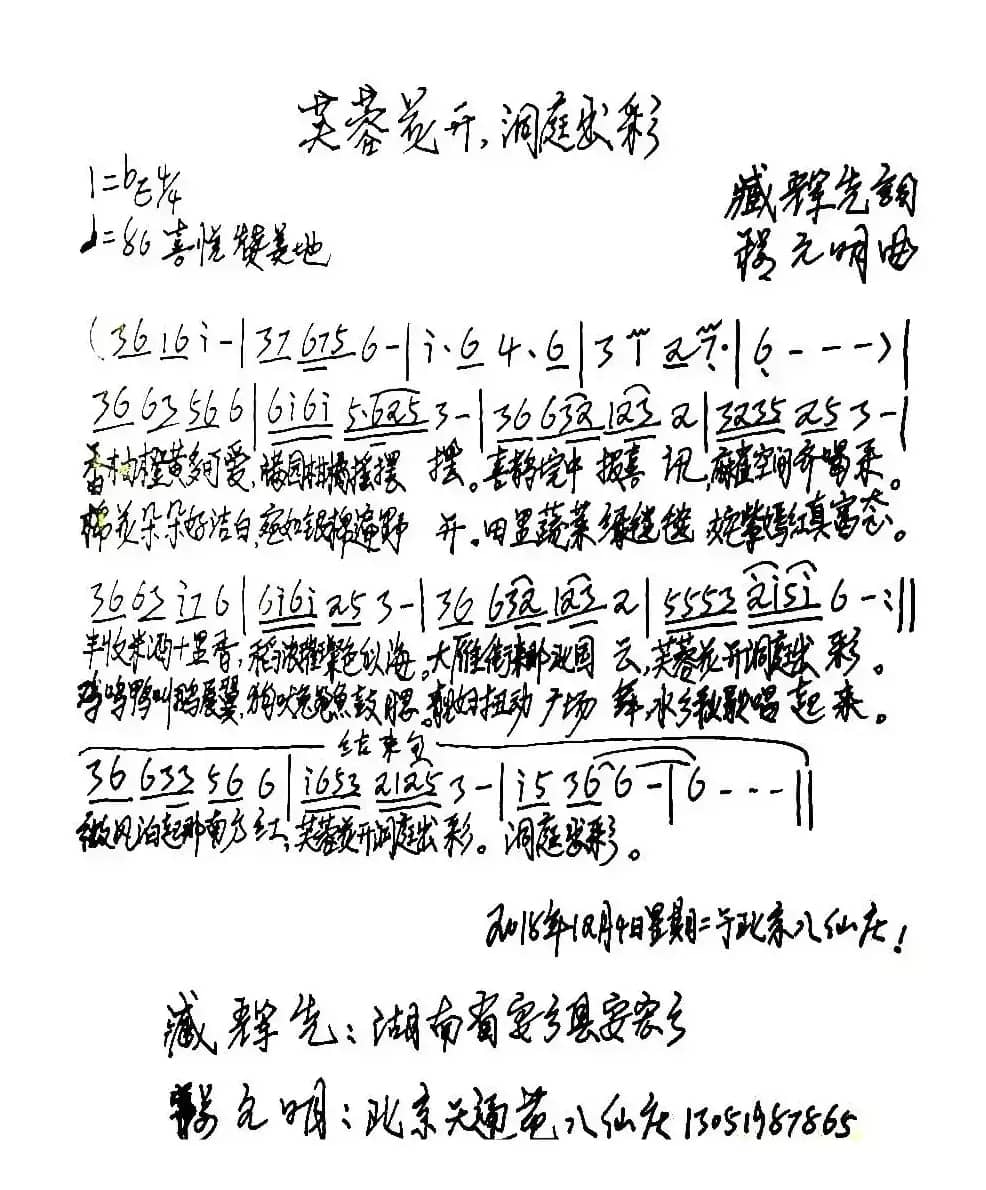 芙蓉花开,洞庭出彩
1=bE 4/4
臧辉先词
♩=86 喜悦赞美地
程元明曲
(36 16 i - | 37 675 6 - | i· 6 4· 6 | 3 i 2 7· | 6 - - - ) |
36 63 56 6 | 6i6i 5·625 3 - | 36 632 123 2 | 3235 25 3 - |
香柚橙黄多可爱,橘园柑橘摇摆 摆。喜鹊 中 报喜 讯,麻雀空间齐唱来。
棉花朵朵好洁白,宛如银棉遍野 开。田里蔬菜绿 姹紫嫣红真富态。
36 63 i7 6 | 6i6i 25 3 - | 36 632 123 2 | 5553 2i5i 6 - :||
丰收米酒十里香,稻浪 色似海。大雁衔来那北国 云,芙蓉花开洞庭出 彩。
鸡鸣鸭叫鹅展翼,狗吠兔 鱼鼓腮。 妇扭动广场 舞,水乡秋歌唱起来。
结束句
36 633 56 6 | i653 2125 3 - | i5 36 6 - | 6 - - - ||
微风 起那南方红,芙蓉花开洞庭出彩。洞庭出彩。
2018年12月4日星期二于北京八仙庄!
臧辉先:湖南省安乡县安农乡
程元明:北京天通苑八仙庄13051987865